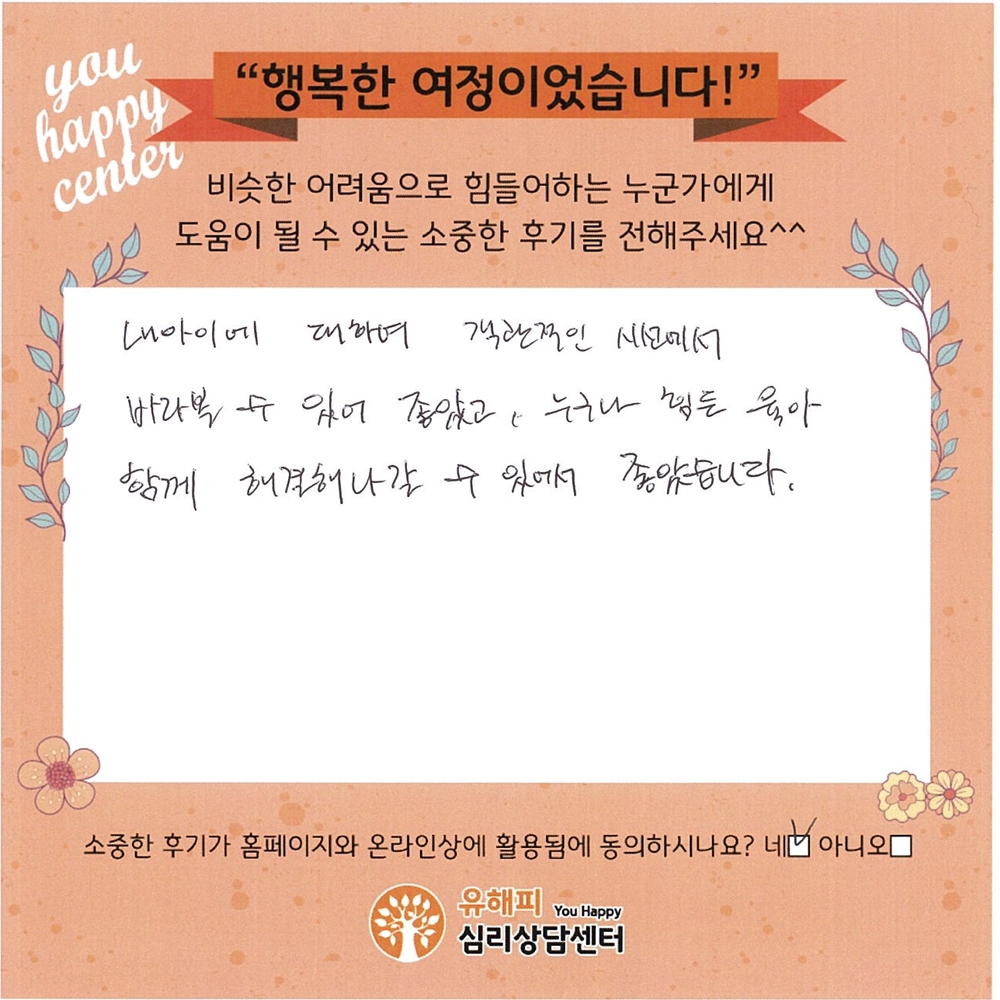 you
happy
center
“행복한 여정이었습니다!”
비슷한 어려움으로 힘들어하는 누군가에게
도움이 될 수 있는 소중한 후기를 전해주세요^^
내아이에 대하여 객관적인 시선에서
바라볼 수 있어 좋았고, 누구나 힘든 육아
함께 해결해나갈 수 있어서 좋았습니다.
소중한 후기가 홈페이지와 온라인상에 활용됨에 동의하시나요? 네☑ 아니오☐
유해피 You Happy
심리상담센터